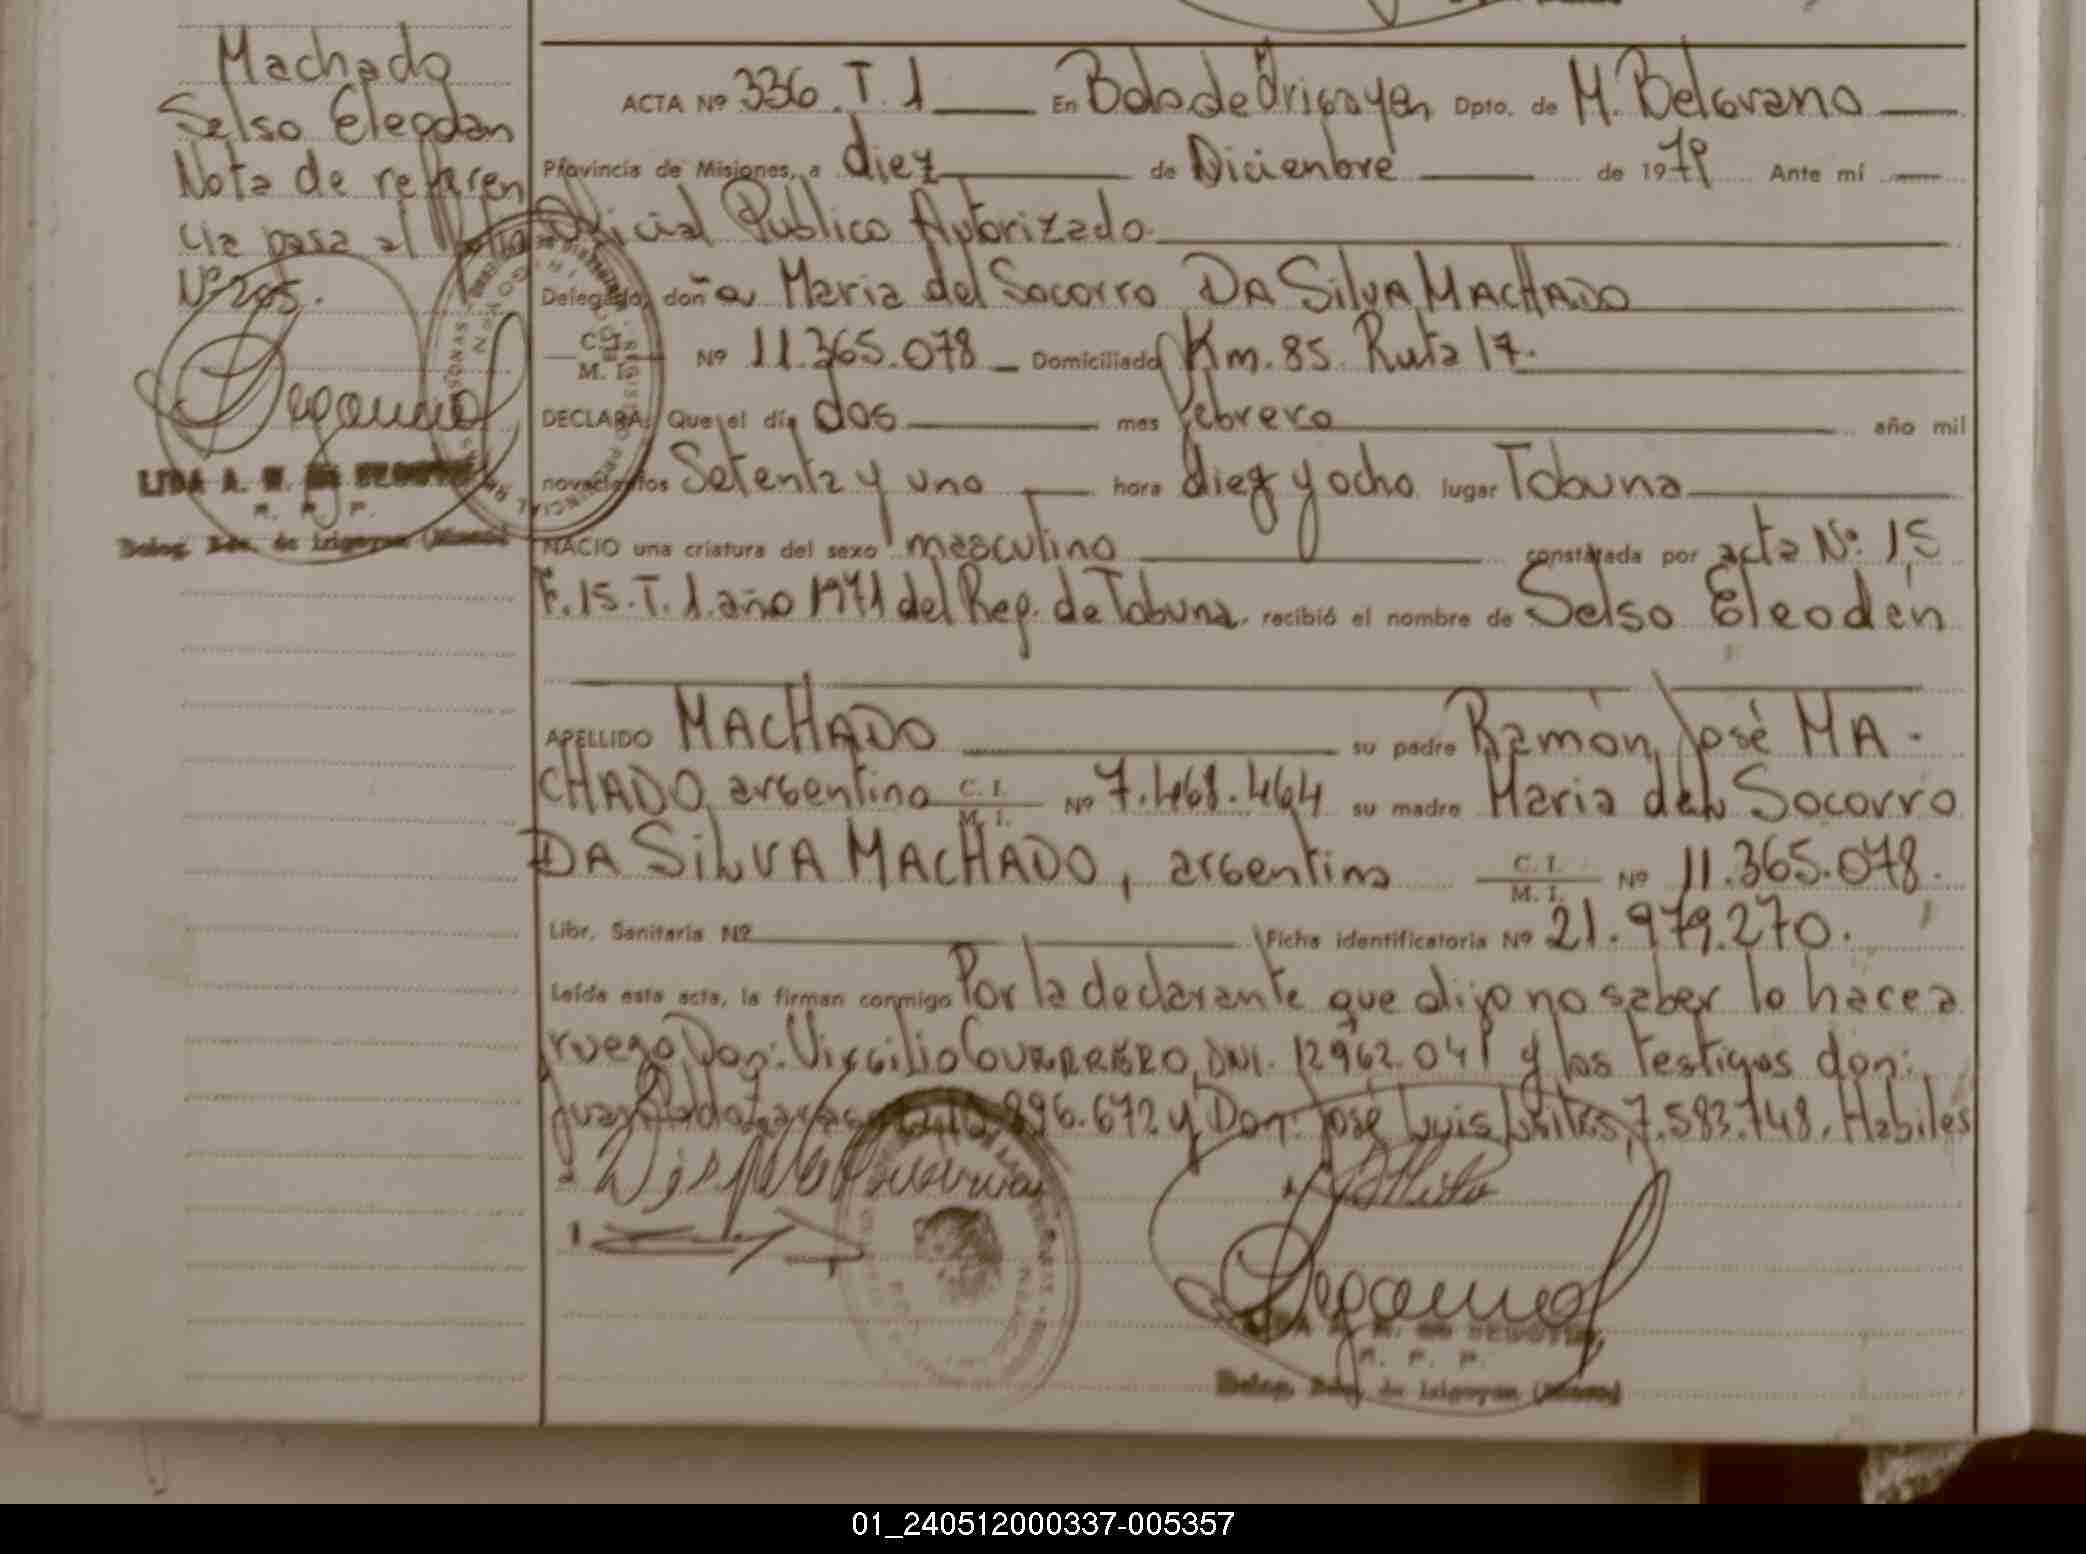 Machado
Selso Eleodan
Nota de referen
cia pasa al
Nº 205.
ACTA Nº 336. T. 1 En Bdo de Yrigoyen Dpto. de M. Belgrano
Provincia de Misiones, a diez de Diciembre de 1979 Ante mí
Oficial Publico Autorizado
Delegado, doña Maria del Socorro DA SilVA MACHADO
C. I. M. I. Nº 11.365.078 Domiciliado Km. 85. Ruta 17.
DECLARA: Que el día dos mes febrero año mil
novecientos Setenta y uno hora diez y ocho lugar Tobuna
NACIO una criatura del sexo masculino constatada por acta Nº. 15
F. 15. T. 1. año 1971 del Reg. de Tobuna. recibió el nombre de Selso Eleodén
APELLIDO MACHADO su padre Ramón José MA-
CHADO, argentino C. I. M. I. Nº 7.468.464 su madre Maria del Socorro
DA SilVA MACHADO, argentina C. I. M. I. Nº 11.365.078.
Libr. Sanitaria Nº Ficha identificatoria Nº 21.979.270.
Leída esta acta, la firman conmigo Por la declarante que dijo no saber lo hace a
ruego Don: Virgilio GUERRERO, DNI. 12962.041 y los testigos don:
Juan 896.672 y Don: José Luis 7.583.748. Habiles
Deleg. Bdo. de Irigoyen (Misiones)
R. P. P.
Deleg. Bdo. de Irigoyen (Misiones)
01_240512000337-005357